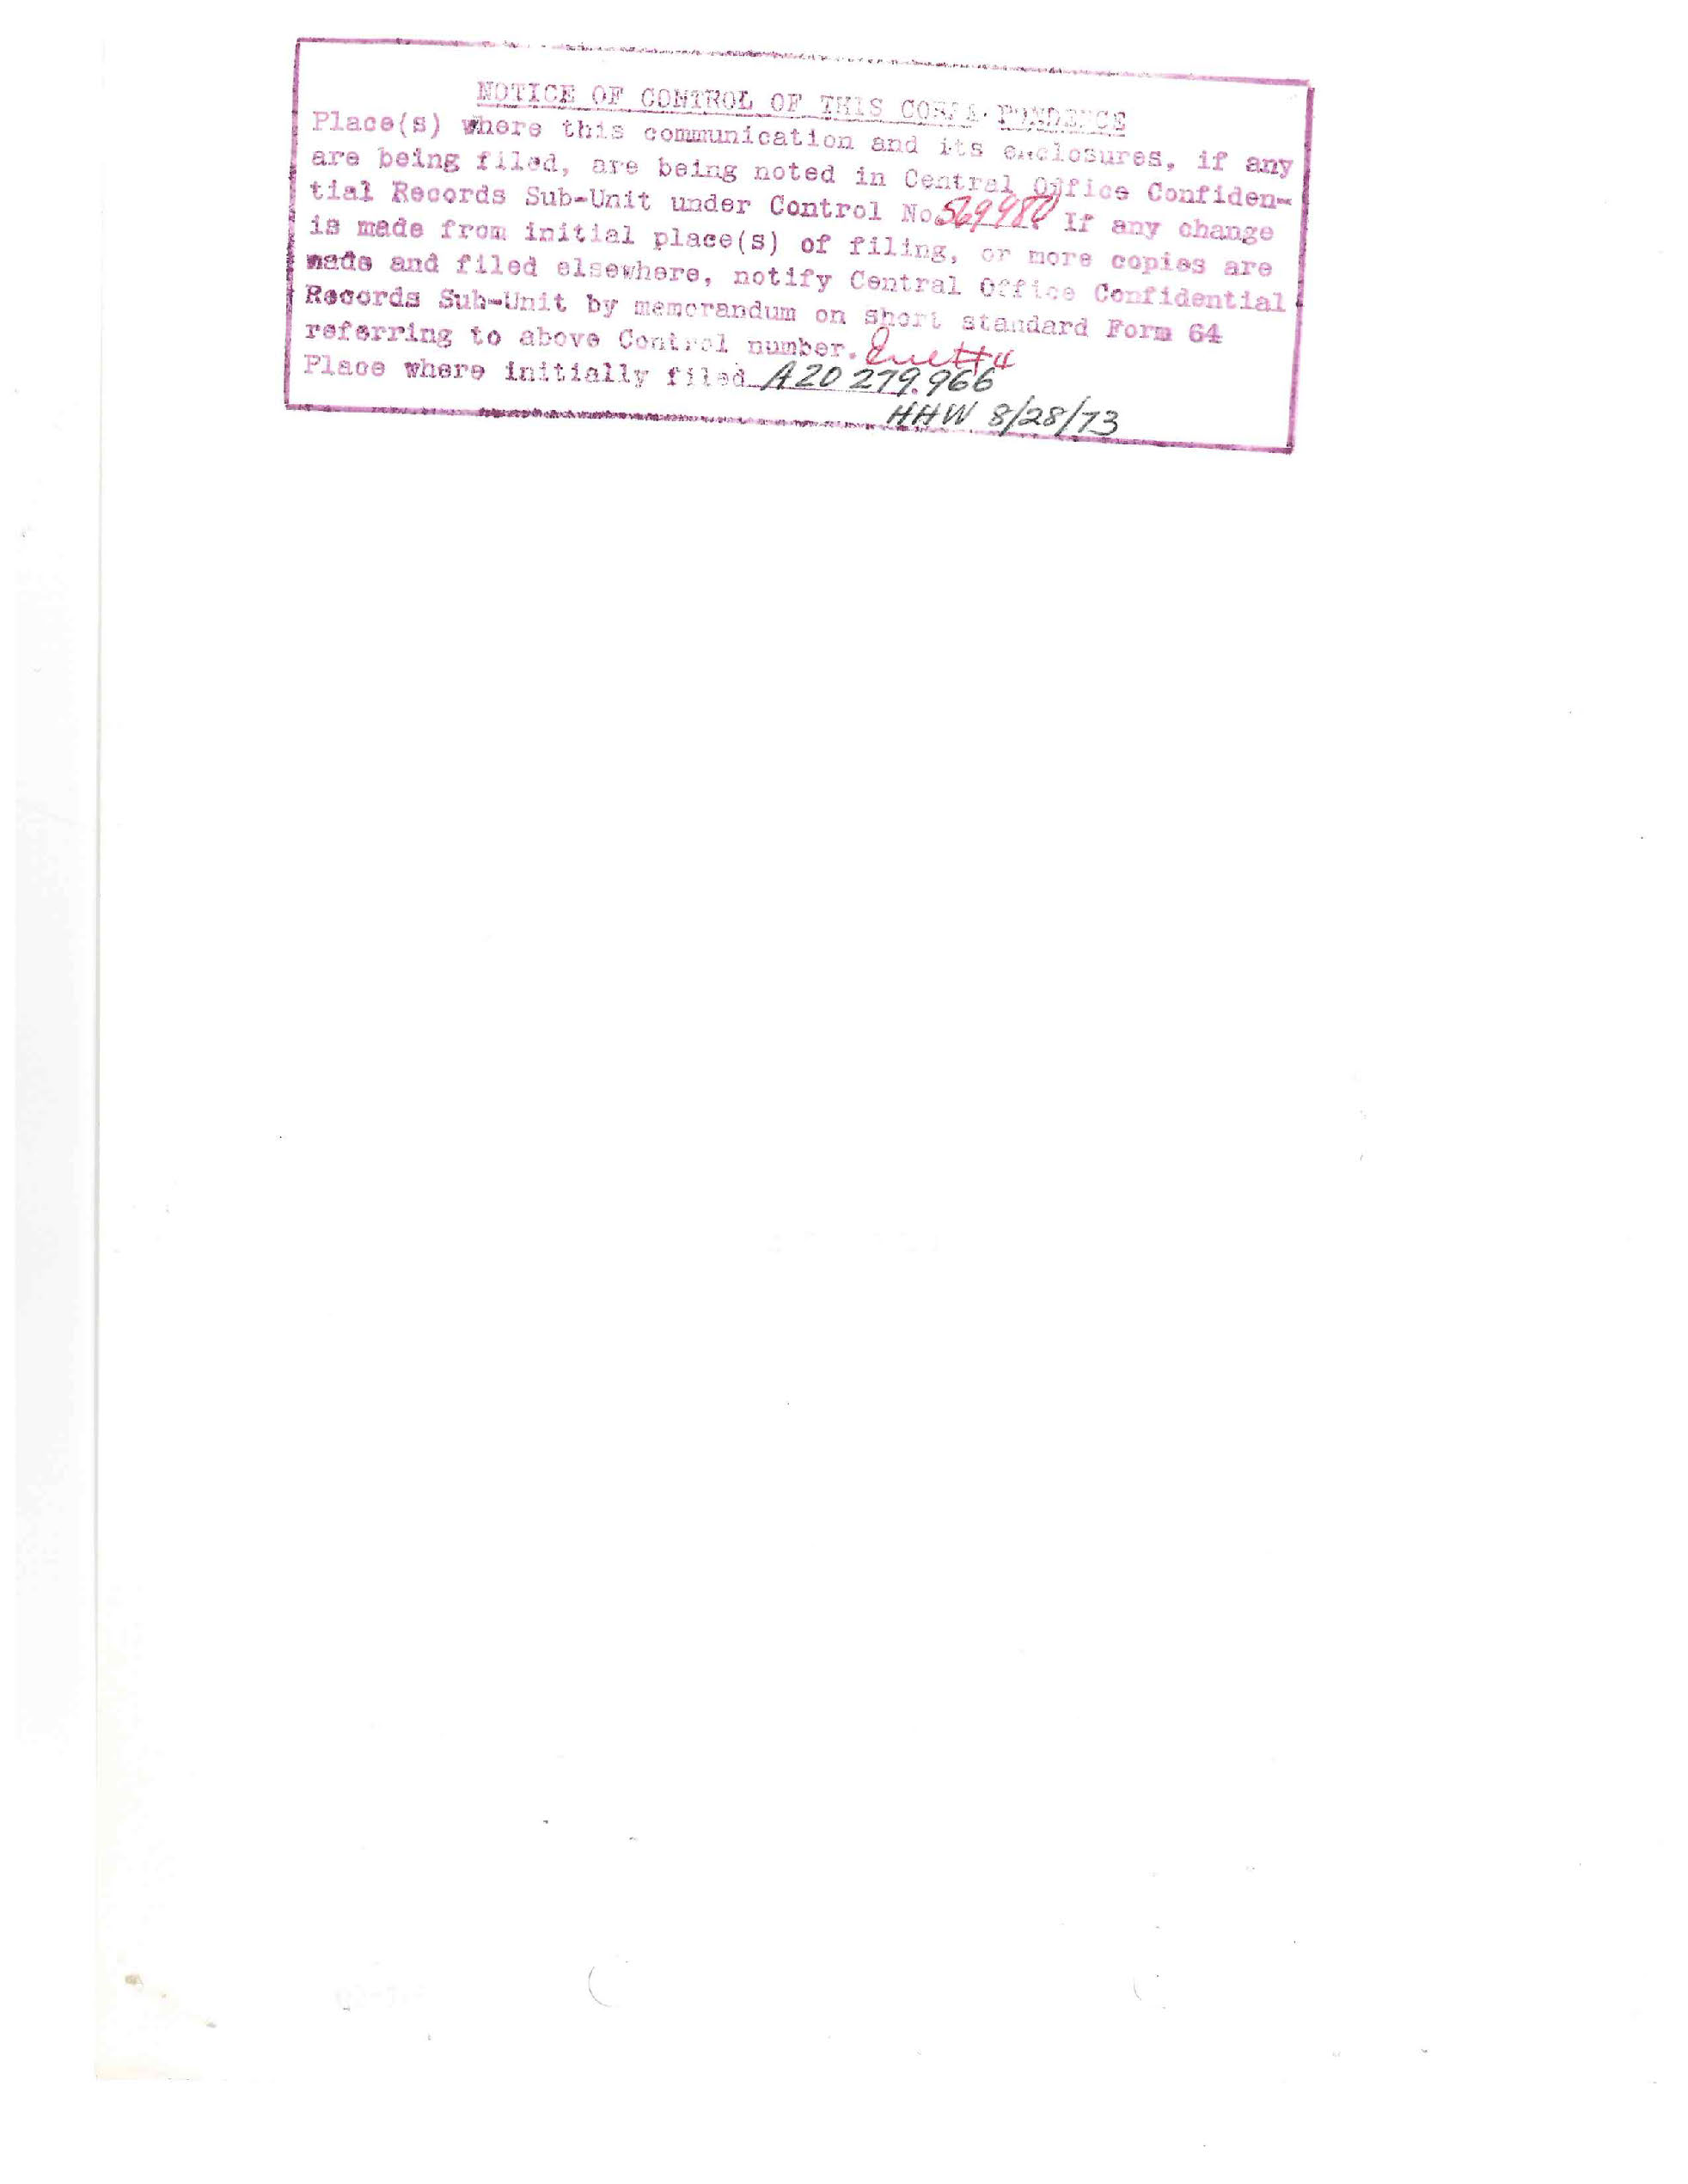 NOTICE OF CONTROL OF THIS CORRESPONDENCE
Place(s) where this communication and its enclosures, if any
are being filed, are being noted in Central Office Confiden-
tial Records Sub-Unit under Control No. 569980 If any change
is made from initial place(s) of filing, or more copies are
made and filed elsewhere, notify Central Office Confidential
Records Sub-Unit by memorandum on short standard Form 64
referring to above Control number.
Place where initially filed A20 279.966
HHW 8/28/73